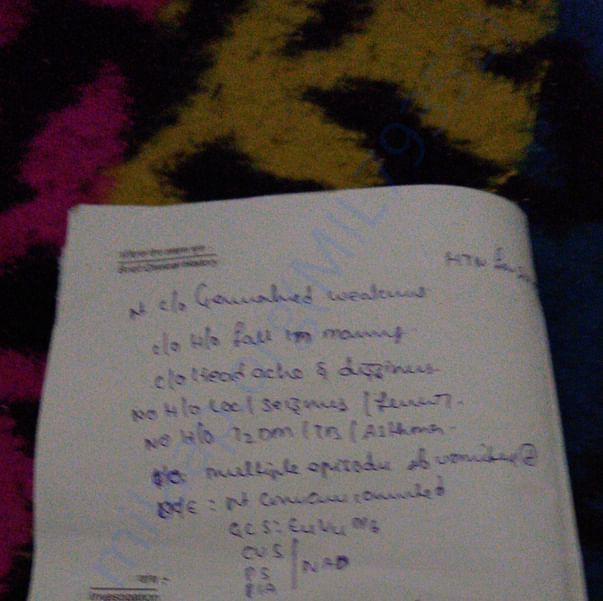 Brief Clinical History
HTN
Pt c/o Generalised weakness
c/o H/o fall in morning
c/o Head ache & dizziness
NO H/o LOC / Seizures /
NO H/o T2DM / TB / Asthma
multiple episodes of vomiting
O/E : Pt conscious
GCS: E4V4M6
CVS
RS NAD
P/A
Investigation